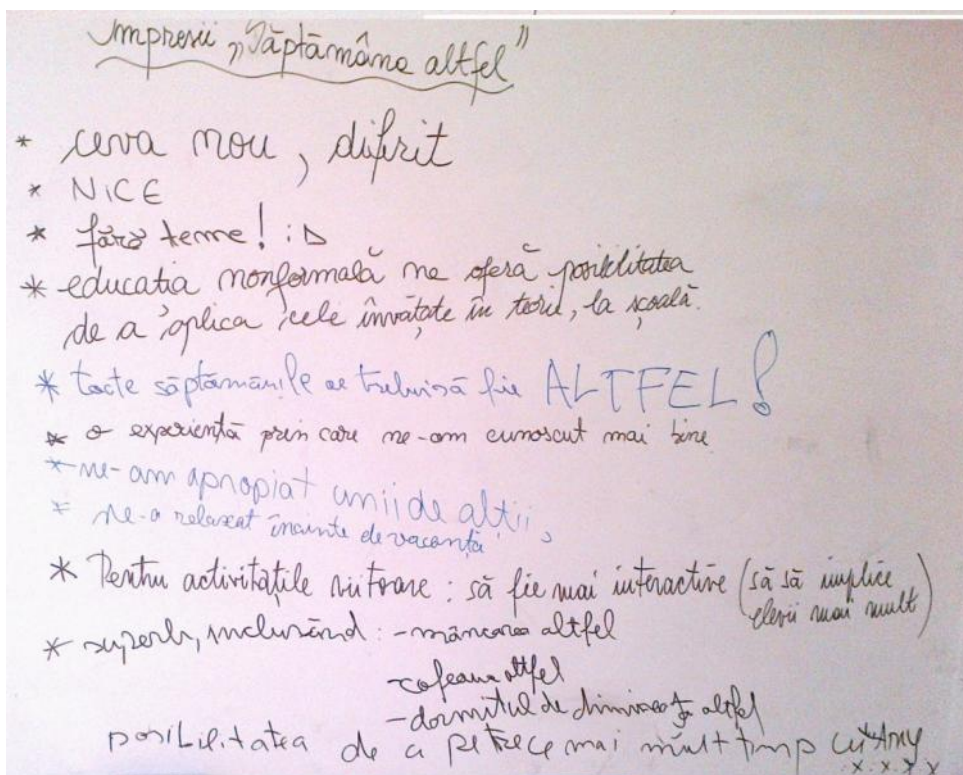 Impresii „Săptămâna altfel”
* ceva nou, diferit
* NICE
* fără teme! :D
* educația nonformală ne oferă posibilitatea
de a aplica cele învățate în teorie, la școală.
* toate săptămânile ar trebui să fie ALTFEL!
* o experiență prin care ne-am cunoscut mai bine
* ne-am apropiat unii de alții,
* Ne-a relaxat înainte de vacanță
* Pentru activitățile viitoare: să fie mai interactive (să să implice
elevii mai mult)
* superb, incluzând: - mâncarea altfel
- cofeaua altfel
- dormitul de dimineață altfel
posibilitatea de a petrece mai mult timp cu Amy
x.x.x.x